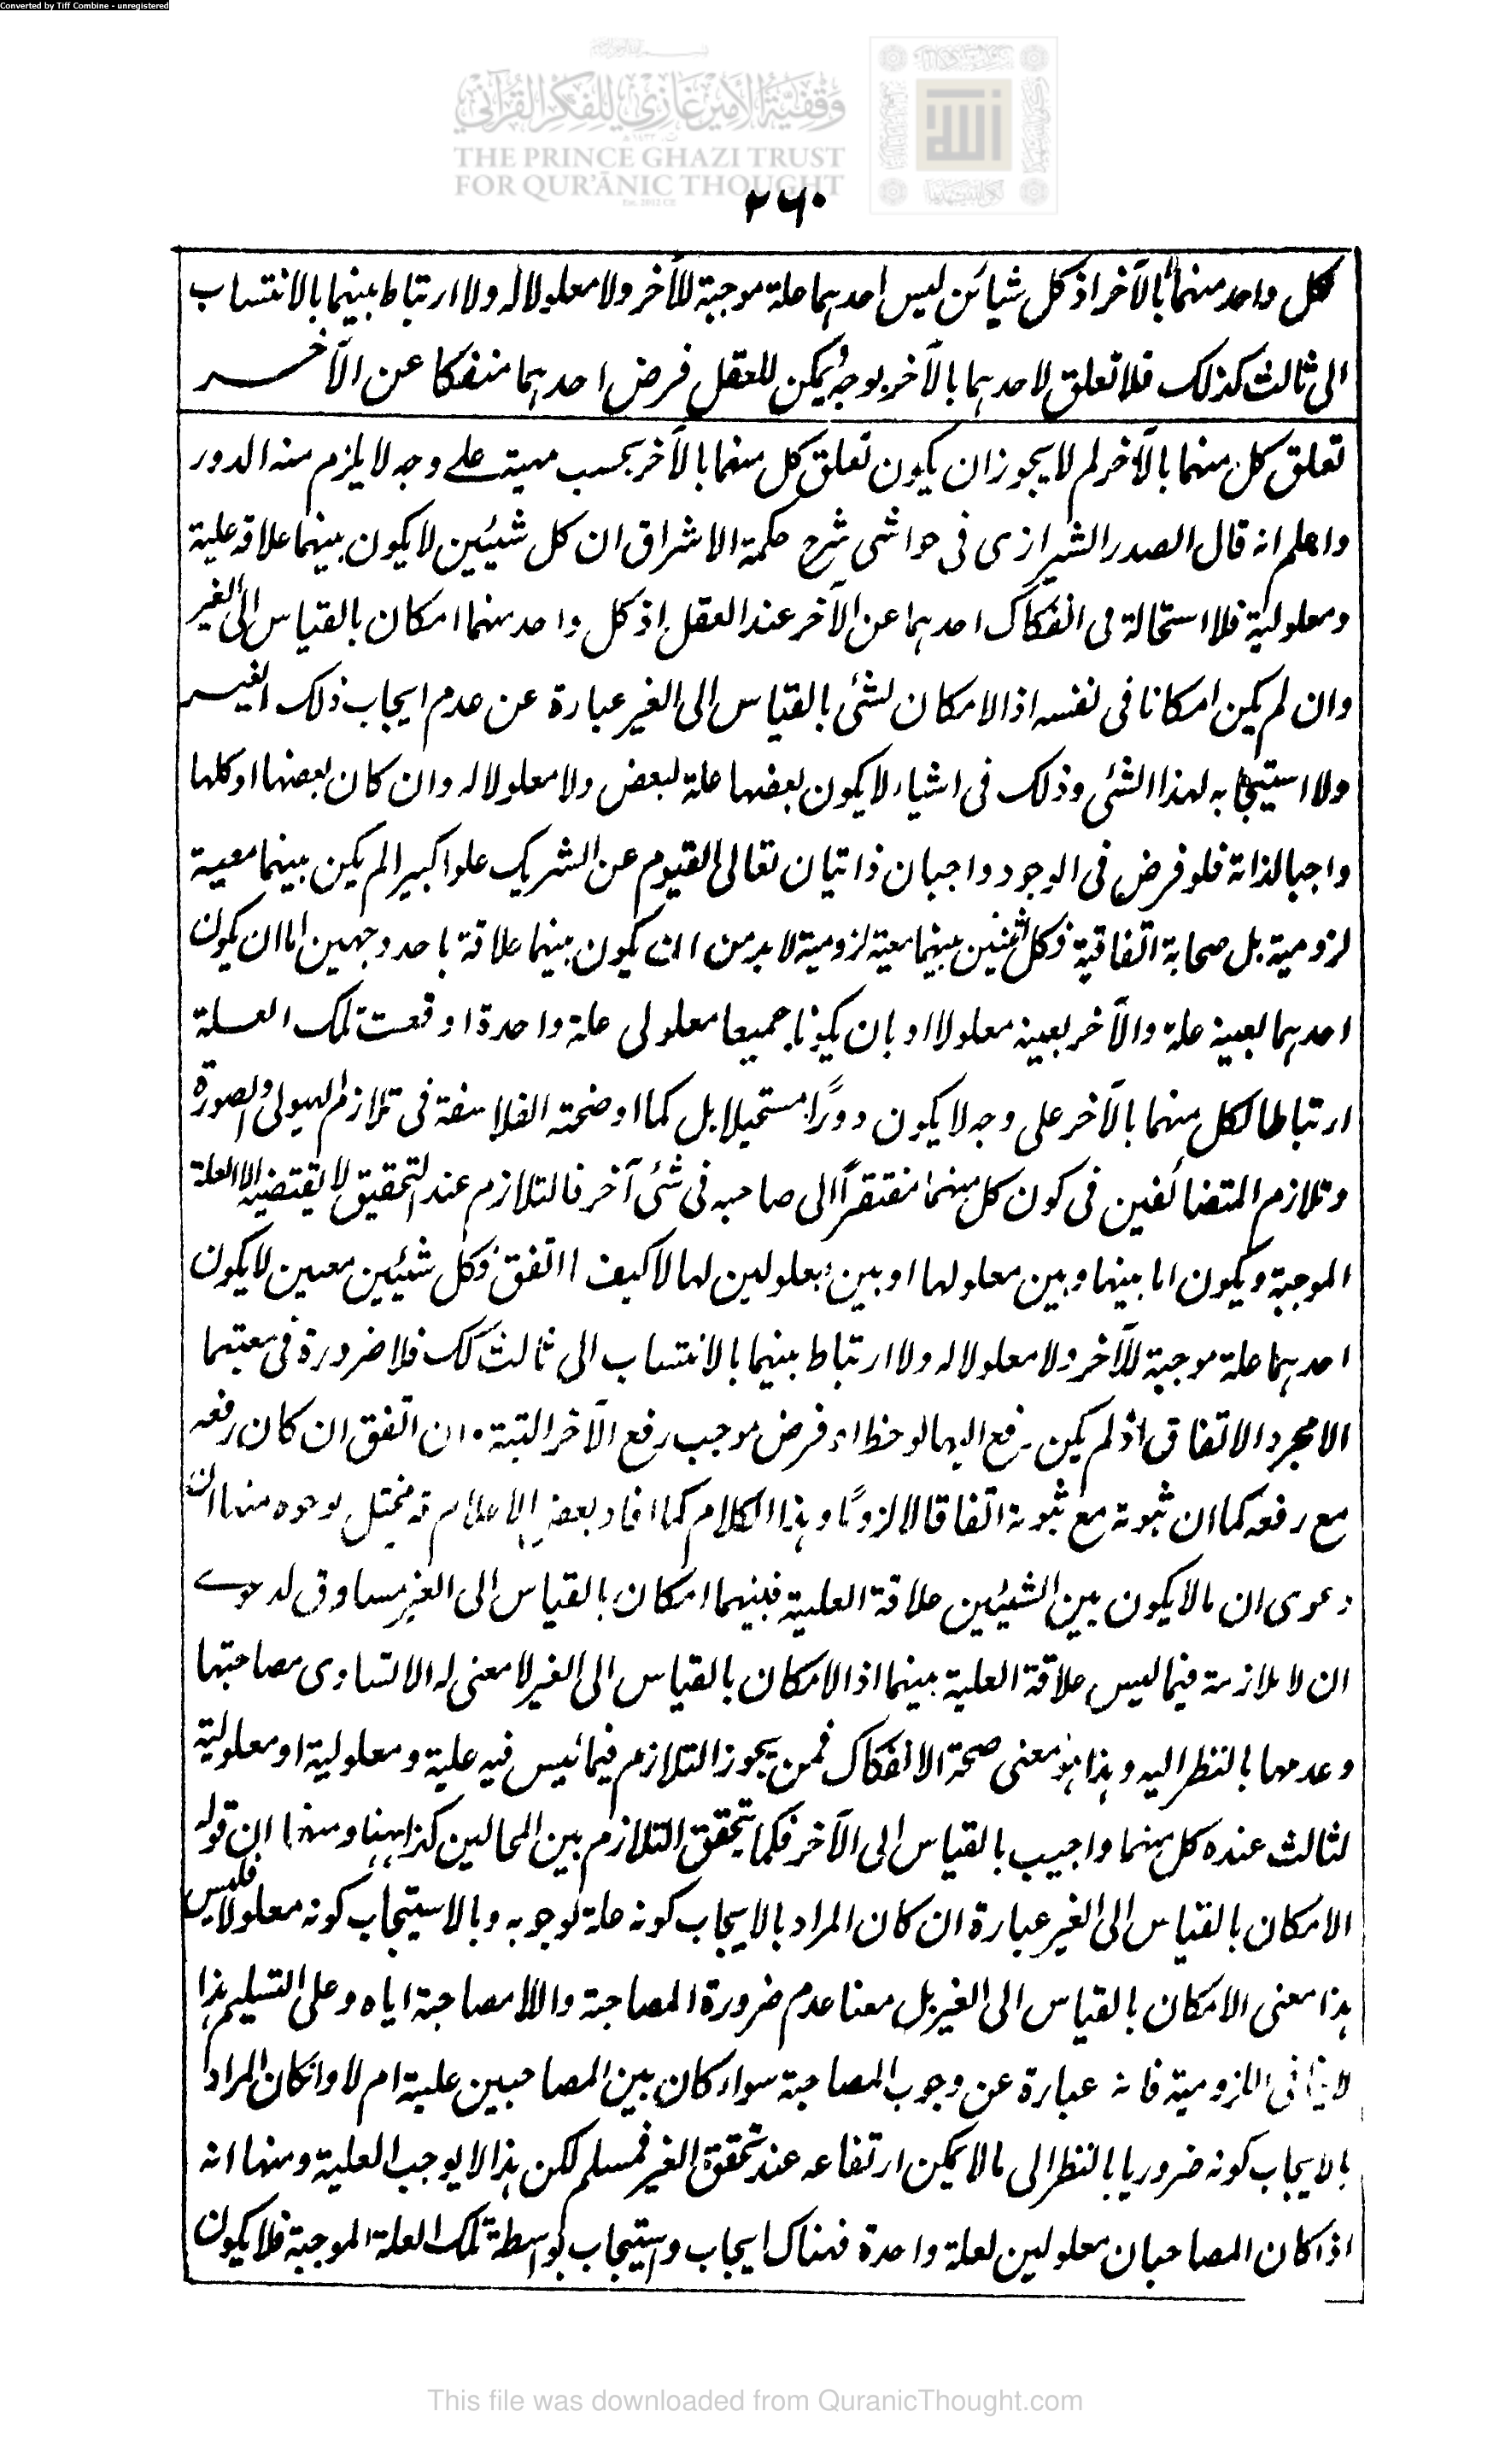 Converted by Tiff Combine - unregistered
وقفية الأمير غازي للفكر القرآني
THE PRINCE GHAZI TRUST
FOR QUR'ĀNIC THOUGHT
Est. 2012 CE
٢٦٠
كل واحد منهما بالآخر اذ كل شيئن ليس احدهما علة موجبة للآخر ولا معلولا له ولا ارتباط بينهما بالانتساب
الى ثالث كذلك فلا تعلق لاحدهما بالآخر بوجه يمكن للعقل فرض احدهما منفكا عن الآخر
تعلق كل منهما بالآخر لم لا يجوز ان يكون تعلق كل منهما بالآخر بحسب مهيته على وجه لا يلزم منه الدور
واعلم انه قال الصدر الشيرازى فى حواشى شرح حكمة الاشراق ان كل شيئين لا يكون بينهما علاقة علية
ومعلولية فلا استحالة فى انفكاك احدهما عن الآخر عند العقل اذ كل واحد منهما امكان بالقياس الى الغير
وان لم يكن امكانا فى نفسه اذ الامكان لشئ بالقياس الى الغير عبارة عن عدم ايجاب ذلك الغير
ولا استيجابه لهذا الشئ وذلك فى اشياء لا يكون بعضها علة لبعض ولا معلولا له وان كان بعضها او كلها
واجبا لذاته فلو فرض فى الوجود واجبان ذاتيان تعالى القيوم عن الشريك علوا كبيرا لم يكن بينهما معية
لزومية بل صحابة اتفاقية فكل اثنين بينهما معية لزومية لا بد من ان يكون بينهما علاقة باحد وجهين اما ان يكون
احدهما بعينه علة والآخر بعينه معلولا او بان يكونا جميعا معلولى علة واحدة اوقعت تلك العلة
ارتباطا لكل منهما بالآخر على وجه لا يكون دورًا مستحيلا بل كما اوضحته الفلاسفة فى تلازم الهيولى والصورة
وتلازم المتضائفين فى كون كل منهما مفتقرًا الى صاحبه فى شئ آخر فالتلازم عند التحقيق لا يقتضيه الا العلة
الموجبة ويكون اما بينها وبين معلولها او بين معلولين لها لا كيف اتفق فكل شيئين معين لا يكون
احدهما علة موجبة للآخر ولا معلولا له ولا ارتباط بينهما بالانتساب الى ثالث كك فلا ضرورة فى معيتهما
الا مجرد الاتفاق اذ لم يكن رفع ايهما لوحظ او فرض موجب رفع الآخر البتة وان اتفق ان كان رفعه
مع رفعه كما ان ثبوته مع ثبوته اتفاقا لا لزومًا وهذا الكلام كما افاد بعض الاعلام قد مختل بوجوه منها ان
دعوى ان ما لا يكون بين الشيئين علاقة العلية فبينهما امكان بالقياس الى الغير مساوق لدعوے
ان لا ملازمة فيما ليس علاقة العلية بينهما اذ الامكان بالقياس الى الغير لا معنى له الا تساوى مصاحبتها
وعدمها بالنظر اليه وهذا هو معنى صحة الانفكاك فمن يجوز التلازم فيما ليس فيه علية ومعلولية او معلولية
لثالث عنده كل منهما واجب بالقياس الى الآخر فكما يتحقق التلازم بين المحالين كذا ههنا ومنها ان قوله
الامكان بالقياس الى الغير عبارة ان كان المراد بالايجاب كونه علة لوجوبه وبالاستيجاب كونه معلولا فليس
هذا معنى الامكان بالقياس الى الغير بل معناه عدم ضرورة المصاحبة واللا مصاحبة اياه وعلى التسليم هذا
لا ينافى اللزومية فانه عبارة عن وجوب المصاحبة سواء كان بين المصاحبين علية ام لا وان كان المراد
بالايجاب كونه ضروريا بالنظر الى ما لا يمكن ارتفاعه عند تحقق الغير فمسلم لكن هذا لا يوجب العلية ومنها انه
اذا كان المصاحبان معلولين لعلة واحدة فهناك ايجاب واستيجاب بواسطة تلك العلة الموجبة فلا يكون
This file was downloaded from QuranicThought.com